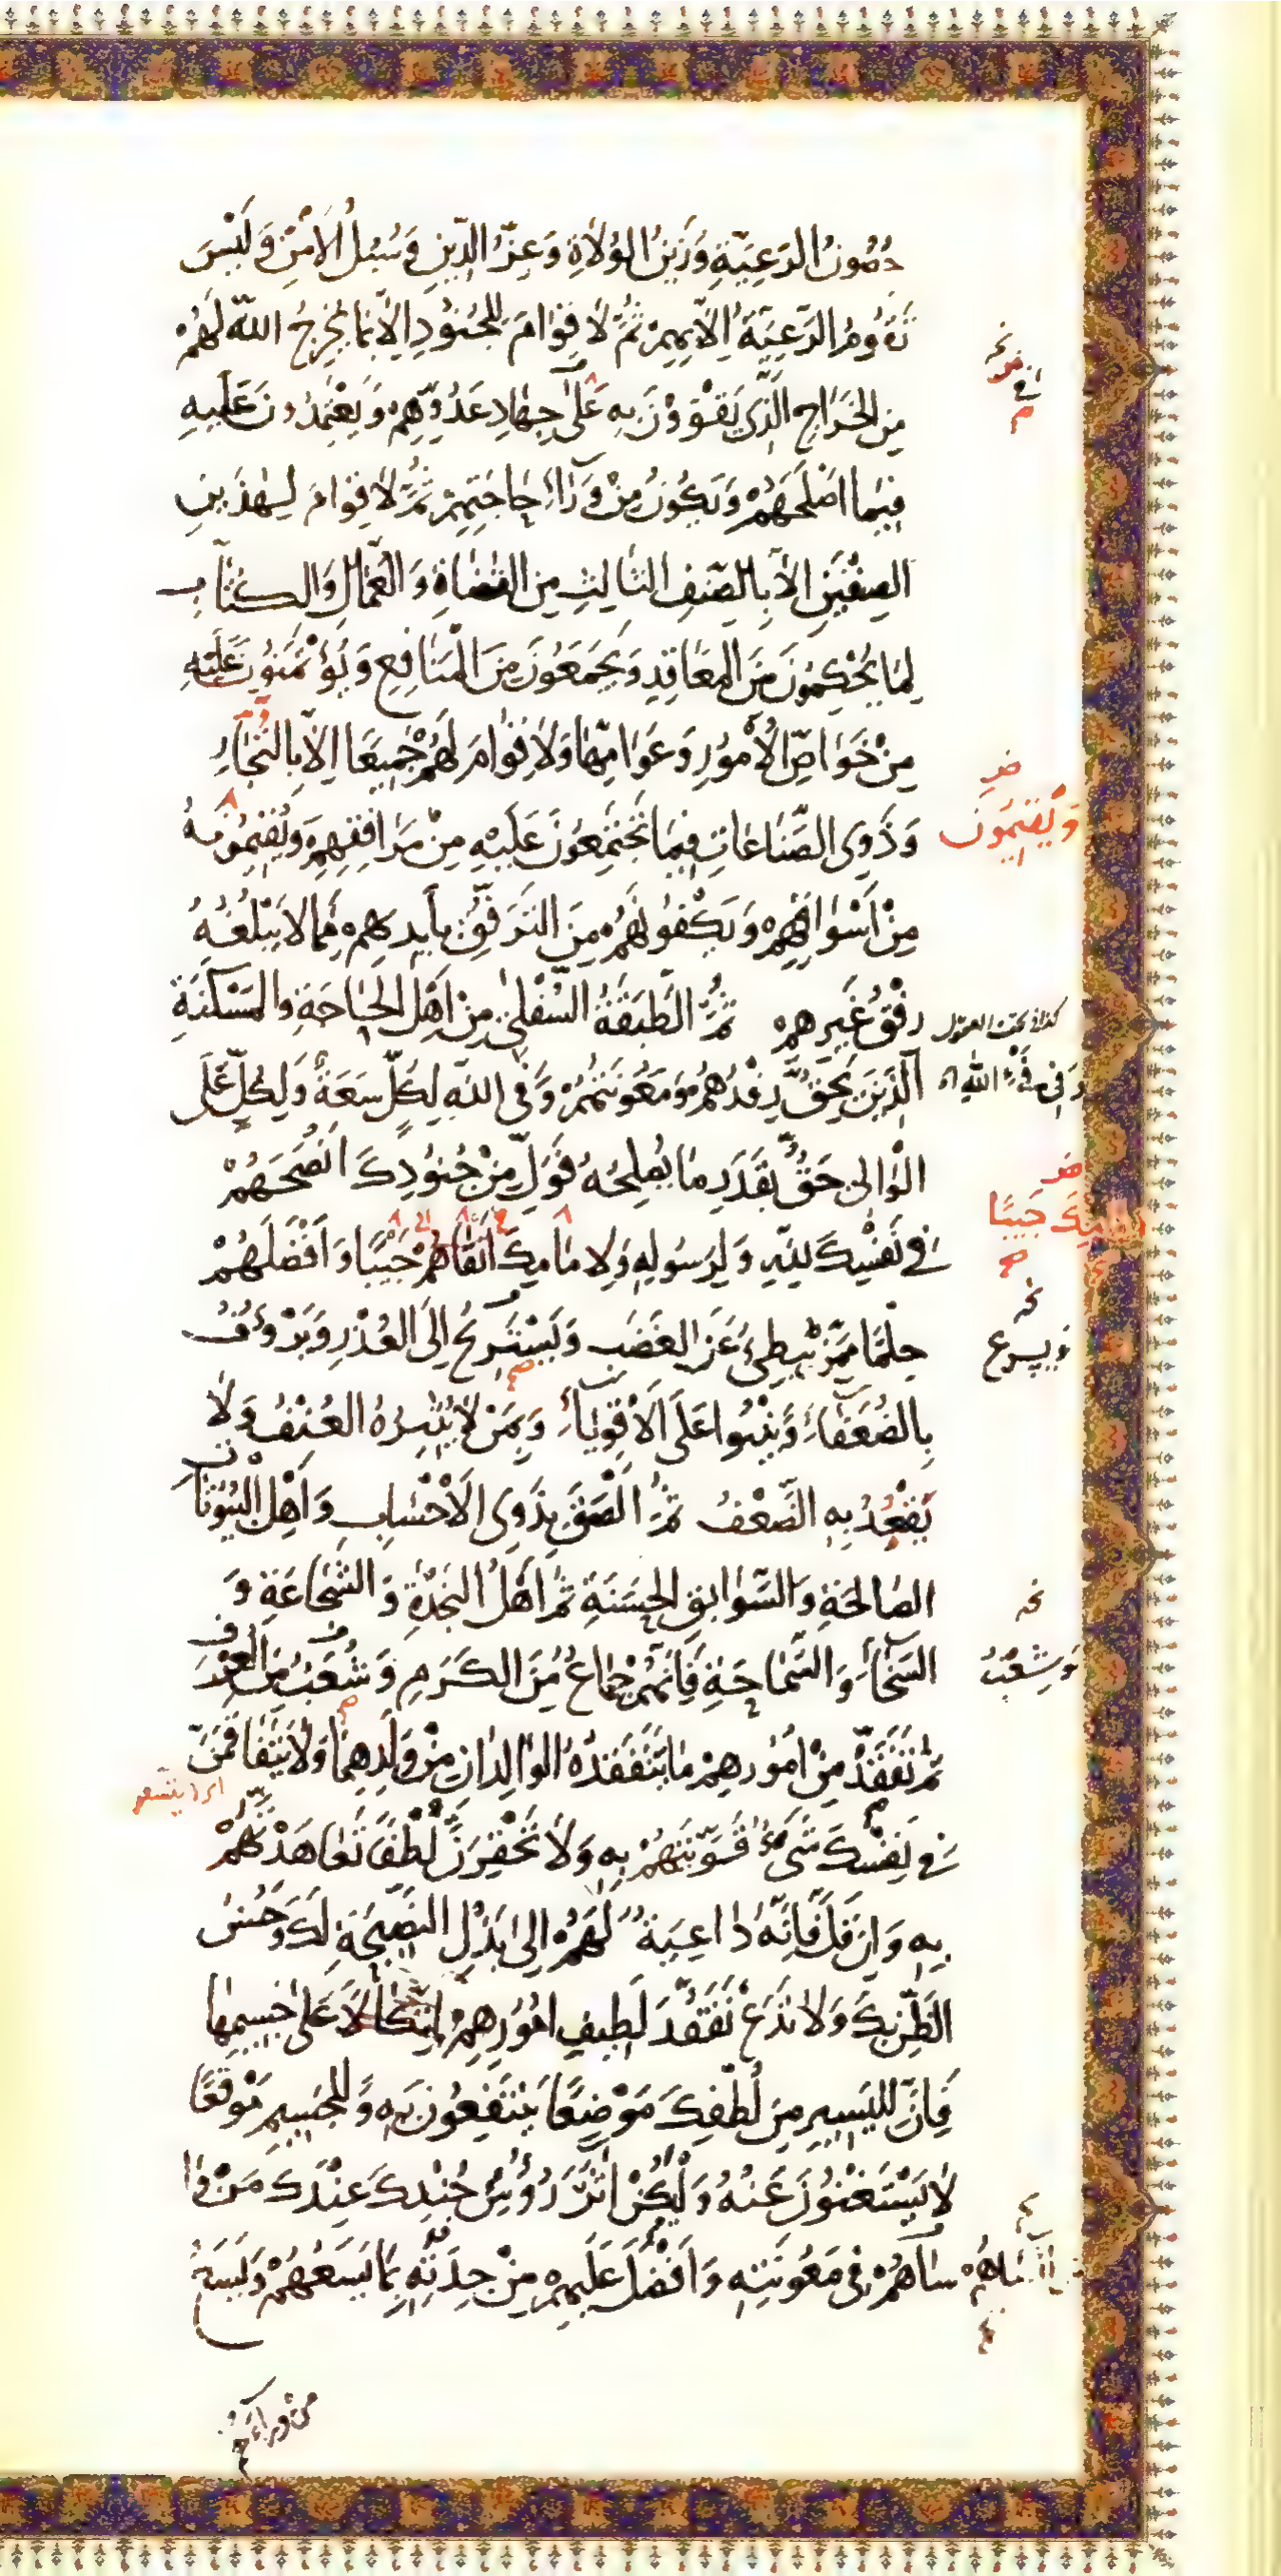 حُصُونُ الرَّعِيَّةِ وَزَيْنُ الْوُلَاةِ وَعِزُّ الدِّينِ وَسُبُلُ الْأَمْنِ وَلَيْسَ
تَقُومُ الرَّعِيَّةُ إِلَّا بِهِمْ ثُمَّ لَا قِوَامَ لِلْجُنُودِ إِلَّا بِمَا يُخْرِجُ اللهُ لَهُمْ
مِنَ الْخَرَاجِ الَّذِي يَقْوَوْنَ بِهِ عَلَى جِهَادِ عَدُوِّهِمْ وَيَعْتَمِدُونَ عَلَيْهِ
فِيمَا أَصْلَحَهُمْ وَيَكُونُ مِنْ وَرَاءِ حَاجَتِهِمْ ثُمَّ لَا قِوَامَ لِهَذَيْنِ
الصِّنْفَيْنِ إِلَّا بِالصِّنْفِ الثَّالِثِ مِنَ الْقُضَاةِ وَالْعُمَّالِ وَالْكُتَّابِ
لِمَا يُحْكِمُونَ مِنَ الْمَعَاقِدِ وَيَجْمَعُونَ مِنَ الْمَنَافِعِ وَيُؤْتَمَنُونَ عَلَيْهِ
مِنْ خَوَاصِّ الْأُمُورِ وَعَوَامِّهَا وَلَا قِوَامَ لَهُمْ جَمِيعًا إِلَّا بِالتُّجَّارِ
وَذَوِي الصِّنَاعَاتِ فِيمَا يَجْتَمِعُونَ عَلَيْهِ مِنْ مَرَافِقِهِمْ وَيُقِيمُونَهُ
وَيُقِيمُونَ
مِنْ أَسْوَاقِهِمْ وَيَكْفُونَهُمْ مِنَ التَّرَفُّقِ بِأَيْدِيهِمْ مِمَّا لَا يَبْلُغُهُ
رِفْقُ غَيْرِهِمْ ثُمَّ الطَّبَقَةُ السُّفْلَى مِنْ أَهْلِ الْحَاجَةِ وَالْمَسْكَنَةِ
الَّذِينَ يَحِقُّ رِفْدُهُمْ وَمَعُونَتُهُمْ وَفِي اللهِ لِكُلٍّ سَعَةٌ وَلِكُلٍّ عَلَى
الْوَالِي حَقٌّ بِقَدْرِ مَا يُصْلِحُهُ فَوَلِّ مِنْ جُنُودِكَ أَنْصَحَهُمْ
فِي نَفْسِكَ لِلَّهِ وَلِرَسُولِهِ وَلِإِمَامِكَ أَنْقَاهُمْ جَيْبًا وَأَفْضَلَهُمْ
حِلْمًا مِمَّنْ يُبْطِئُ عَنِ الْغَضَبِ وَيَسْتَرِيحُ إِلَى الْعُذْرِ وَيَرْؤُفُ
وَيُسْرِعُ
بِالضُّعَفَاءِ وَيَنْبُوا عَلَى الْأَقْوِيَاءِ وَمِمَّنْ لَا يُثِيرُهُ الْعُنْفُ وَلَا
يَقْعُدُ بِهِ الضَّعْفُ ثُمَّ الْصَقْ بِذَوِي الْأَحْسَابِ وَأَهْلِ الْبُيُوتَاتِ
الصَّالِحَةِ وَالسَّوَابِقِ الْحَسَنَةِ ثُمَّ أَهْلِ النَّجْدَةِ وَالشَّجَاعَةِ وَ
السَّخَاءِ وَالسَّمَاحَةِ فَإِنَّهُمْ جِمَاعٌ مِنَ الْكَرَمِ وَشُعَبٌ مِنَ الْعُرْفِ
وَشِعَبٌ
ثُمَّ تَفَقَّدْ مِنْ أُمُورِهِمْ مَا يَتَفَقَّدُهُ الْوَالِدَانِ مِنْ وَلَدِهِمَا وَلَا يَتَفَاقَمَنَّ
فِي نَفْسِكَ شَيْءٌ قَوَّيْتَهُمْ بِهِ وَلَا تَحْقِرَنَّ لُطْفًا تَعَاهَدْتَهُمْ
بِهِ وَإِنْ قَلَّ فَإِنَّهُ دَاعِيَةٌ لَهُمْ إِلَى بَذْلِ النَّصِيحَةِ لَكَ وَحُسْنِ
الظَّنِّ بِكَ وَلَا تَدَعْ تَفَقُّدَ لَطِيفِ أُمُورِهِمْ اتِّكَالًا عَلَى جَسِيمِهَا
فَإِنَّ لِلْيَسِيرِ مِنْ لُطْفِكَ مَوْضِعًا يَنْتَفِعُونَ بِهِ وَلِلْجَسِيمِ مَوْقِعًا
لَا يَسْتَغْنُونَ عَنْهُ وَلْيَكُنْ آثَرُ رُؤُسِ جُنْدِكَ عِنْدَكَ مَنْ وَا
سَاهُمْ فِي مَعُونَتِهِ وَأَفْضَلَ عَلَيْهِمْ مِنْ جِدَتِهِ بِمَا يَسَعُهُمْ وَيَسَعُ
مَنْ وَرَاءَ